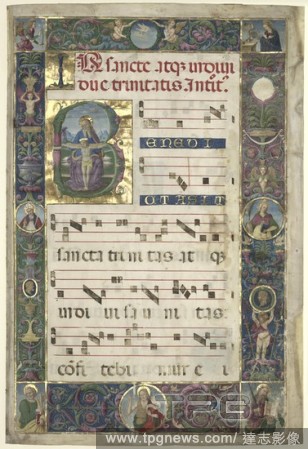 sancte atq
due trinitatis
B
ENEDI
CTA SIT
sancta tri ni tas at q
indi ui sa u ni tas
cōfi tebi mur e i
TPG
www.tpgnews.com/達志影像